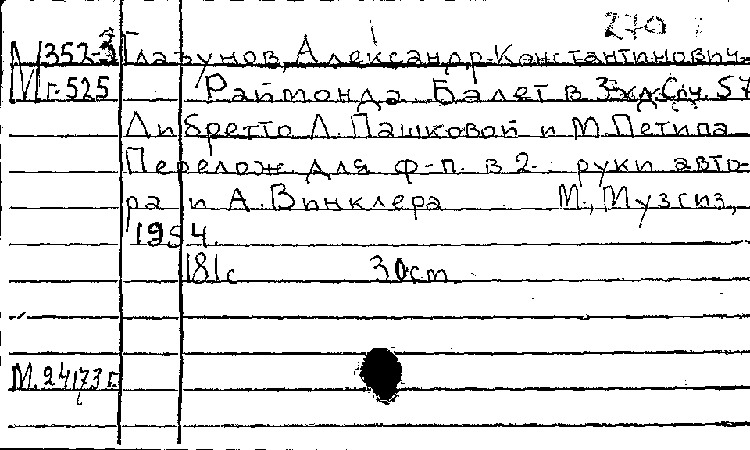 270
М 352-3 Глазунов, Александр Константинович.
М г. 525 Раймонда. Балет в 3х д. Соч. 57
Либретто Л. Пашковой и М. Петипа
Перелож. для ф-п. в 2 руки авто-
ра и А. Винклера М., Музгиз,
1954.
181с 30cm
М. 24173 г.